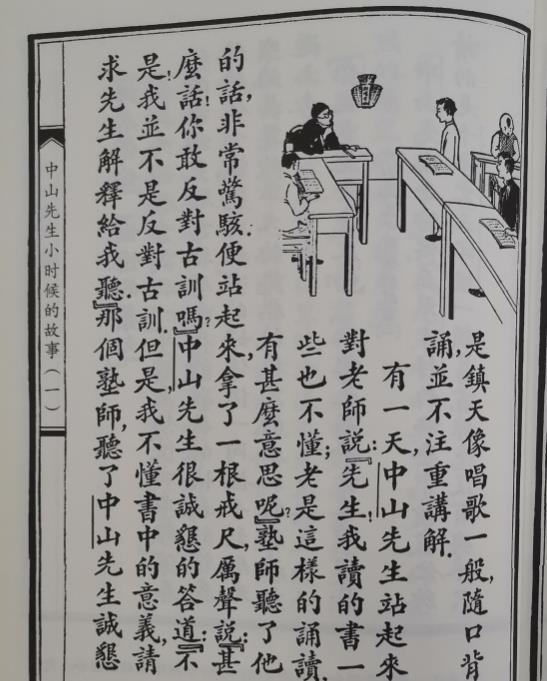 是鎮天像唱歌一般,隨口背
誦,並不注重講解.
有一天,中山先生站起來
對老師說:『先生!我讀的書一
些也不懂;老是這樣的誦讀,
有甚麼意思呢?』塾師聽了他
的話,非常驚駭.便站起來,拿了一根戒尺,厲聲說:『甚
麼話!你敢反對古訓嗎?』中山先生很誠懇的答道:『不
是!我並不是反對古訓.但是,我不懂書中的意義,請
求先生解釋給我聽.』那個塾師,聽了中山先生誠懇
中山先生小时候的故事(一)